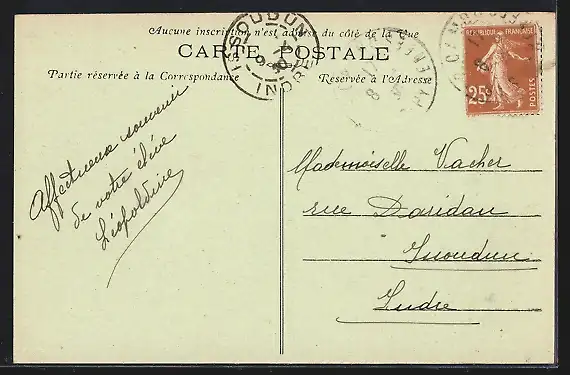 Aucune inscription n'est admise du côté de la Vue
CARTE POSTALE
Partie réservée à la Correspondance
Réservée à l'Adresse
ISSOUDUN
INDRE
REPUBLIQUE FRANÇAISE
25c
POSTES
Affectueux souvenir
de votre élève
Léopoldine
Mademoiselle Vacher
rue Daridan
Issoudun
Indre